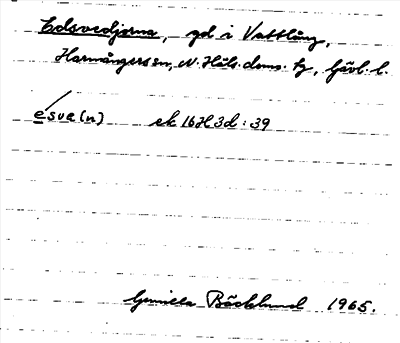 Edsvedjorna, gd i Vattlång,
Harmångers sn, N. Häls. doms. tg, Gävl. l.
esve(n) ek 16H3d:39
Gunilla Bäcklund 1965.